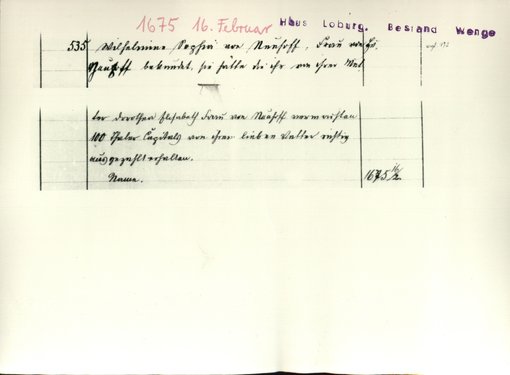 1675 16. Februar Haus Loburg. Bestand Wenge
535 Wilhelmine Sophie von Neuhoff, Frau von
bekundet, sie hätte die ihr von ihrer
ter Dorothea Elisabeth Frau von Neuhoff vermachten
100 Thaler Capitals von ihrem lieben Vatter richtig
ausgezahlt erhalten.
Name. 1675 16/2